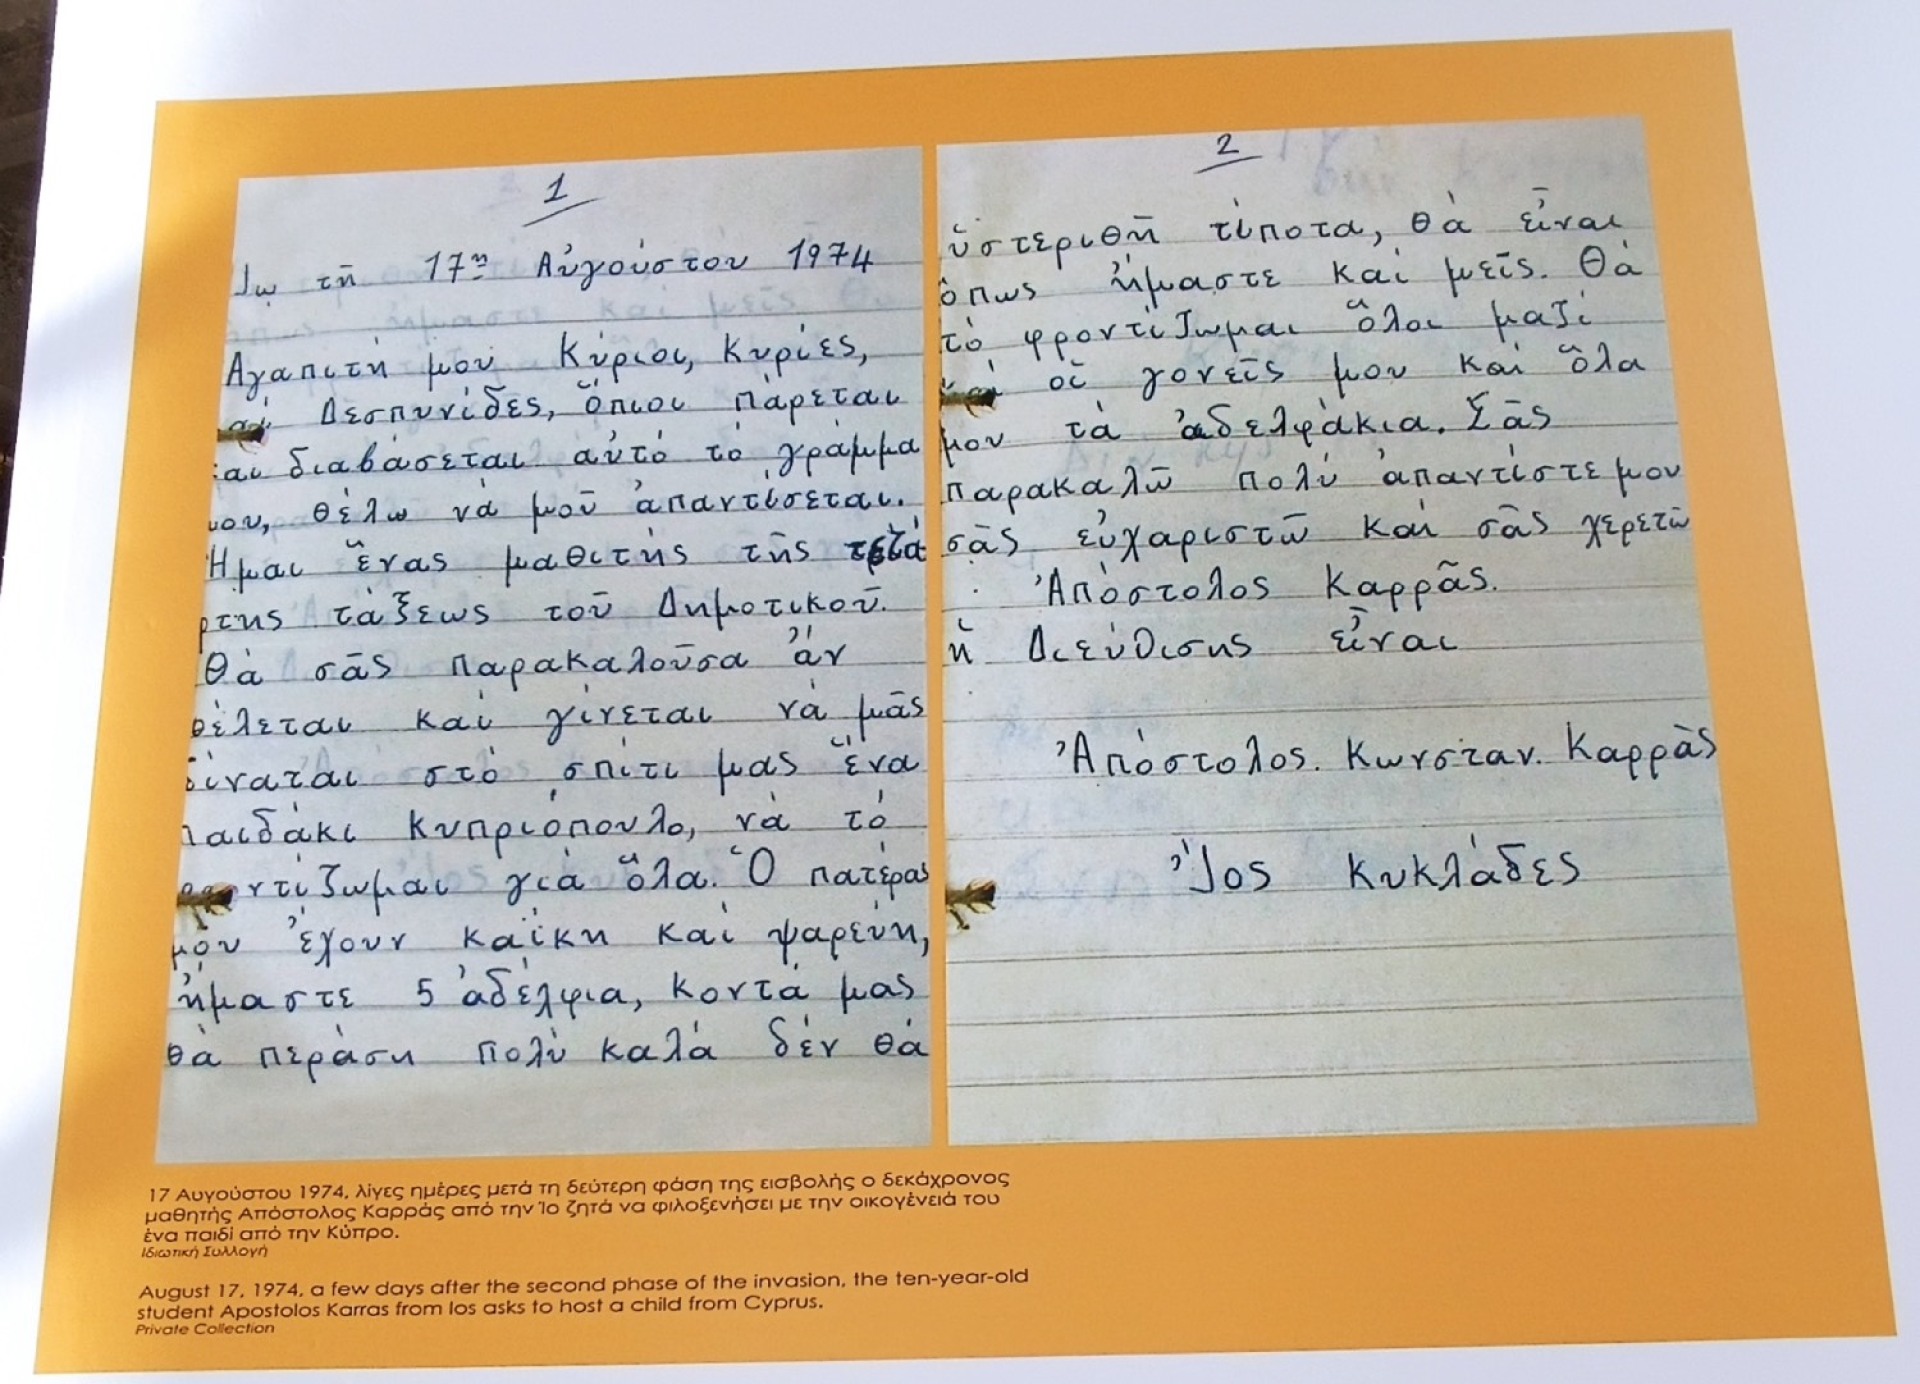 1
Ἰῳ τῇ 17η Αὐγούστου 1974
Αγαπιτή μου Κύριοι, Κυρίες,
Δεσπυνίδες, ὅπιοι πάρεται
και διαβάσεται αὐτό τό γράμμα
μου, θέλω νά μοῦ ἀπαντίσεται.
Ἠμαι ἕνας μαθιτής τῆς τετά
ρτης τάξεως τοῦ Δημοτικοῦ.
Θά σᾶς παρακαλοῦσα ἄν
θέλεται καί γίνεται νά μᾶς
δίναται στό σπίτι μας ἕνα
παιδάκι Κυπριόπουλο, νά τό
φροντίζωμαι γιά ὅλα. Ὁ πατέρας
μου ἔχουν καΐκη καί ψαρεύη,
ἤμαστε 5 ἀδέλφια, κοντά μας
θά περάση πολύ καλά δέν θά
2
ὑστεριθῆ τίποτα, θά εἶναι
ὅπως ἤμαστε καί μεῖς. Θά
τό φροντίζωμαι ὅλοι μαζί
καί οἱ γονεῖς μου καί ὅλα
μου τά ἀδελφάκια. Σᾶς
παρακαλῶ πολύ ἀπαντίστε μου
σᾶς εὐχαριστῶ καί σᾶς χερετῶ
Ἀπόστολος Καρρᾶς.
ἡ Διεύθισης εἶναι
Ἀπόστολος. Κωνσταν. Καρρᾶς
Ἴος Κυκλάδες
17 Αυγούστου 1974, λίγες ημέρες μετά τη δεύτερη φάση της εισβολής ο δεκάχρονος
μαθητής Απόστολος Καρράς από την Ίο ζητά να φιλοξενήσει με την οικογένειά του
ένα παιδί από την Κύπρο.
Ιδιωτική Συλλογή
August 17, 1974, a few days after the second phase of the invasion, the ten-year-old
student Apostolos Karras from Ios asks to host a child from Cyprus.
Private Collection